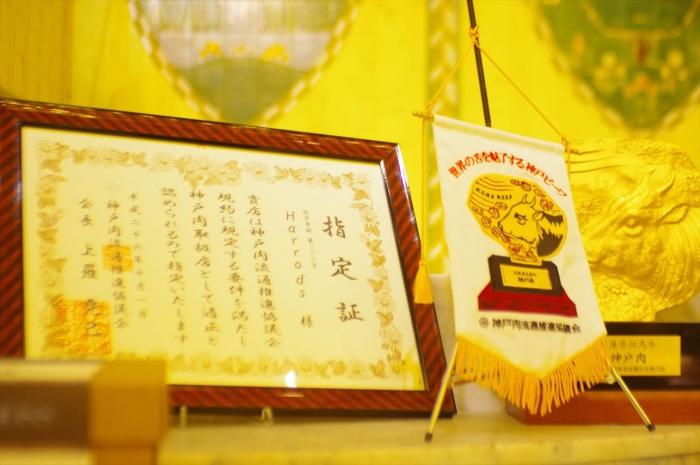 指定証
Harrods 様
貴店は神戸肉流通推進協議会
規約に規定する要件を満たし
神戸肉取扱店として適正と
認められるので指定いたします
平成二十六年十月一日
神戸肉流通推進協議会
会長 上羅
世界の舌を魅了する神戸ビーフ
KOBE BEEF
神戸肉流通推進協議会
神戸肉